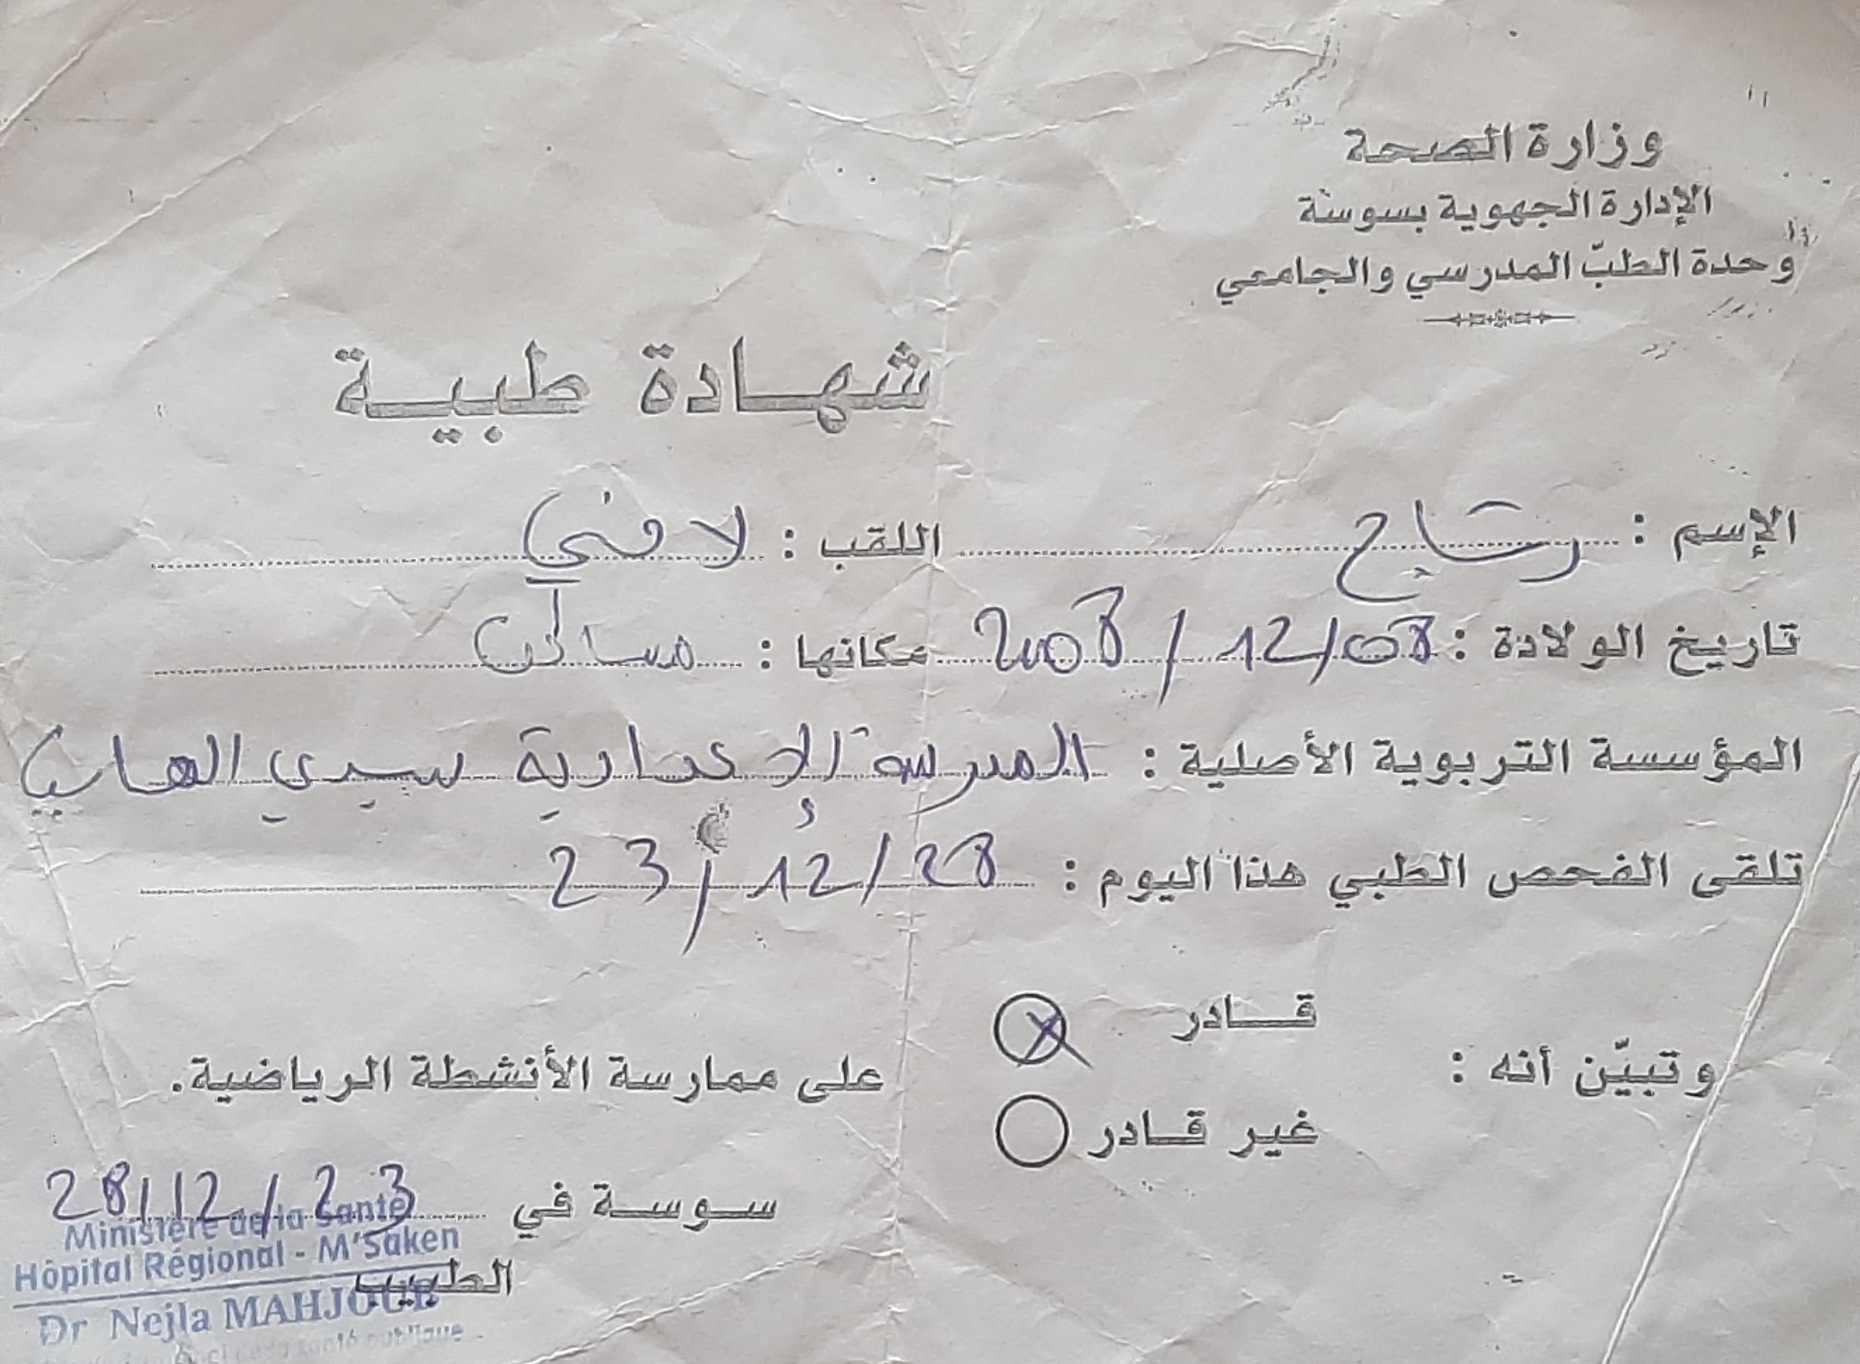 وزارة الصحة
الإدارة الجهوية بسوسة
وحدة الطبّ المدرسي والجامعي
شهادة طبية
الإسم : رتاج اللقب : لافي
تاريخ الولادة : 08/12/2008 مكانها : مساكن
المؤسسة التربوية الأصلية : المدرسة الإعدادية سيدي الهاني
تلقى الفحص الطبي هذا اليوم : 28/12/23
وتبيّن أنه :
قادر
غير قادر
على ممارسة الأنشطة الرياضية.
سوسة في 28/12/23
الطبيب
Ministère de la Santé
Hôpital Régional - M'Saken
Dr Nejla MAHJOUB
de la santé publique